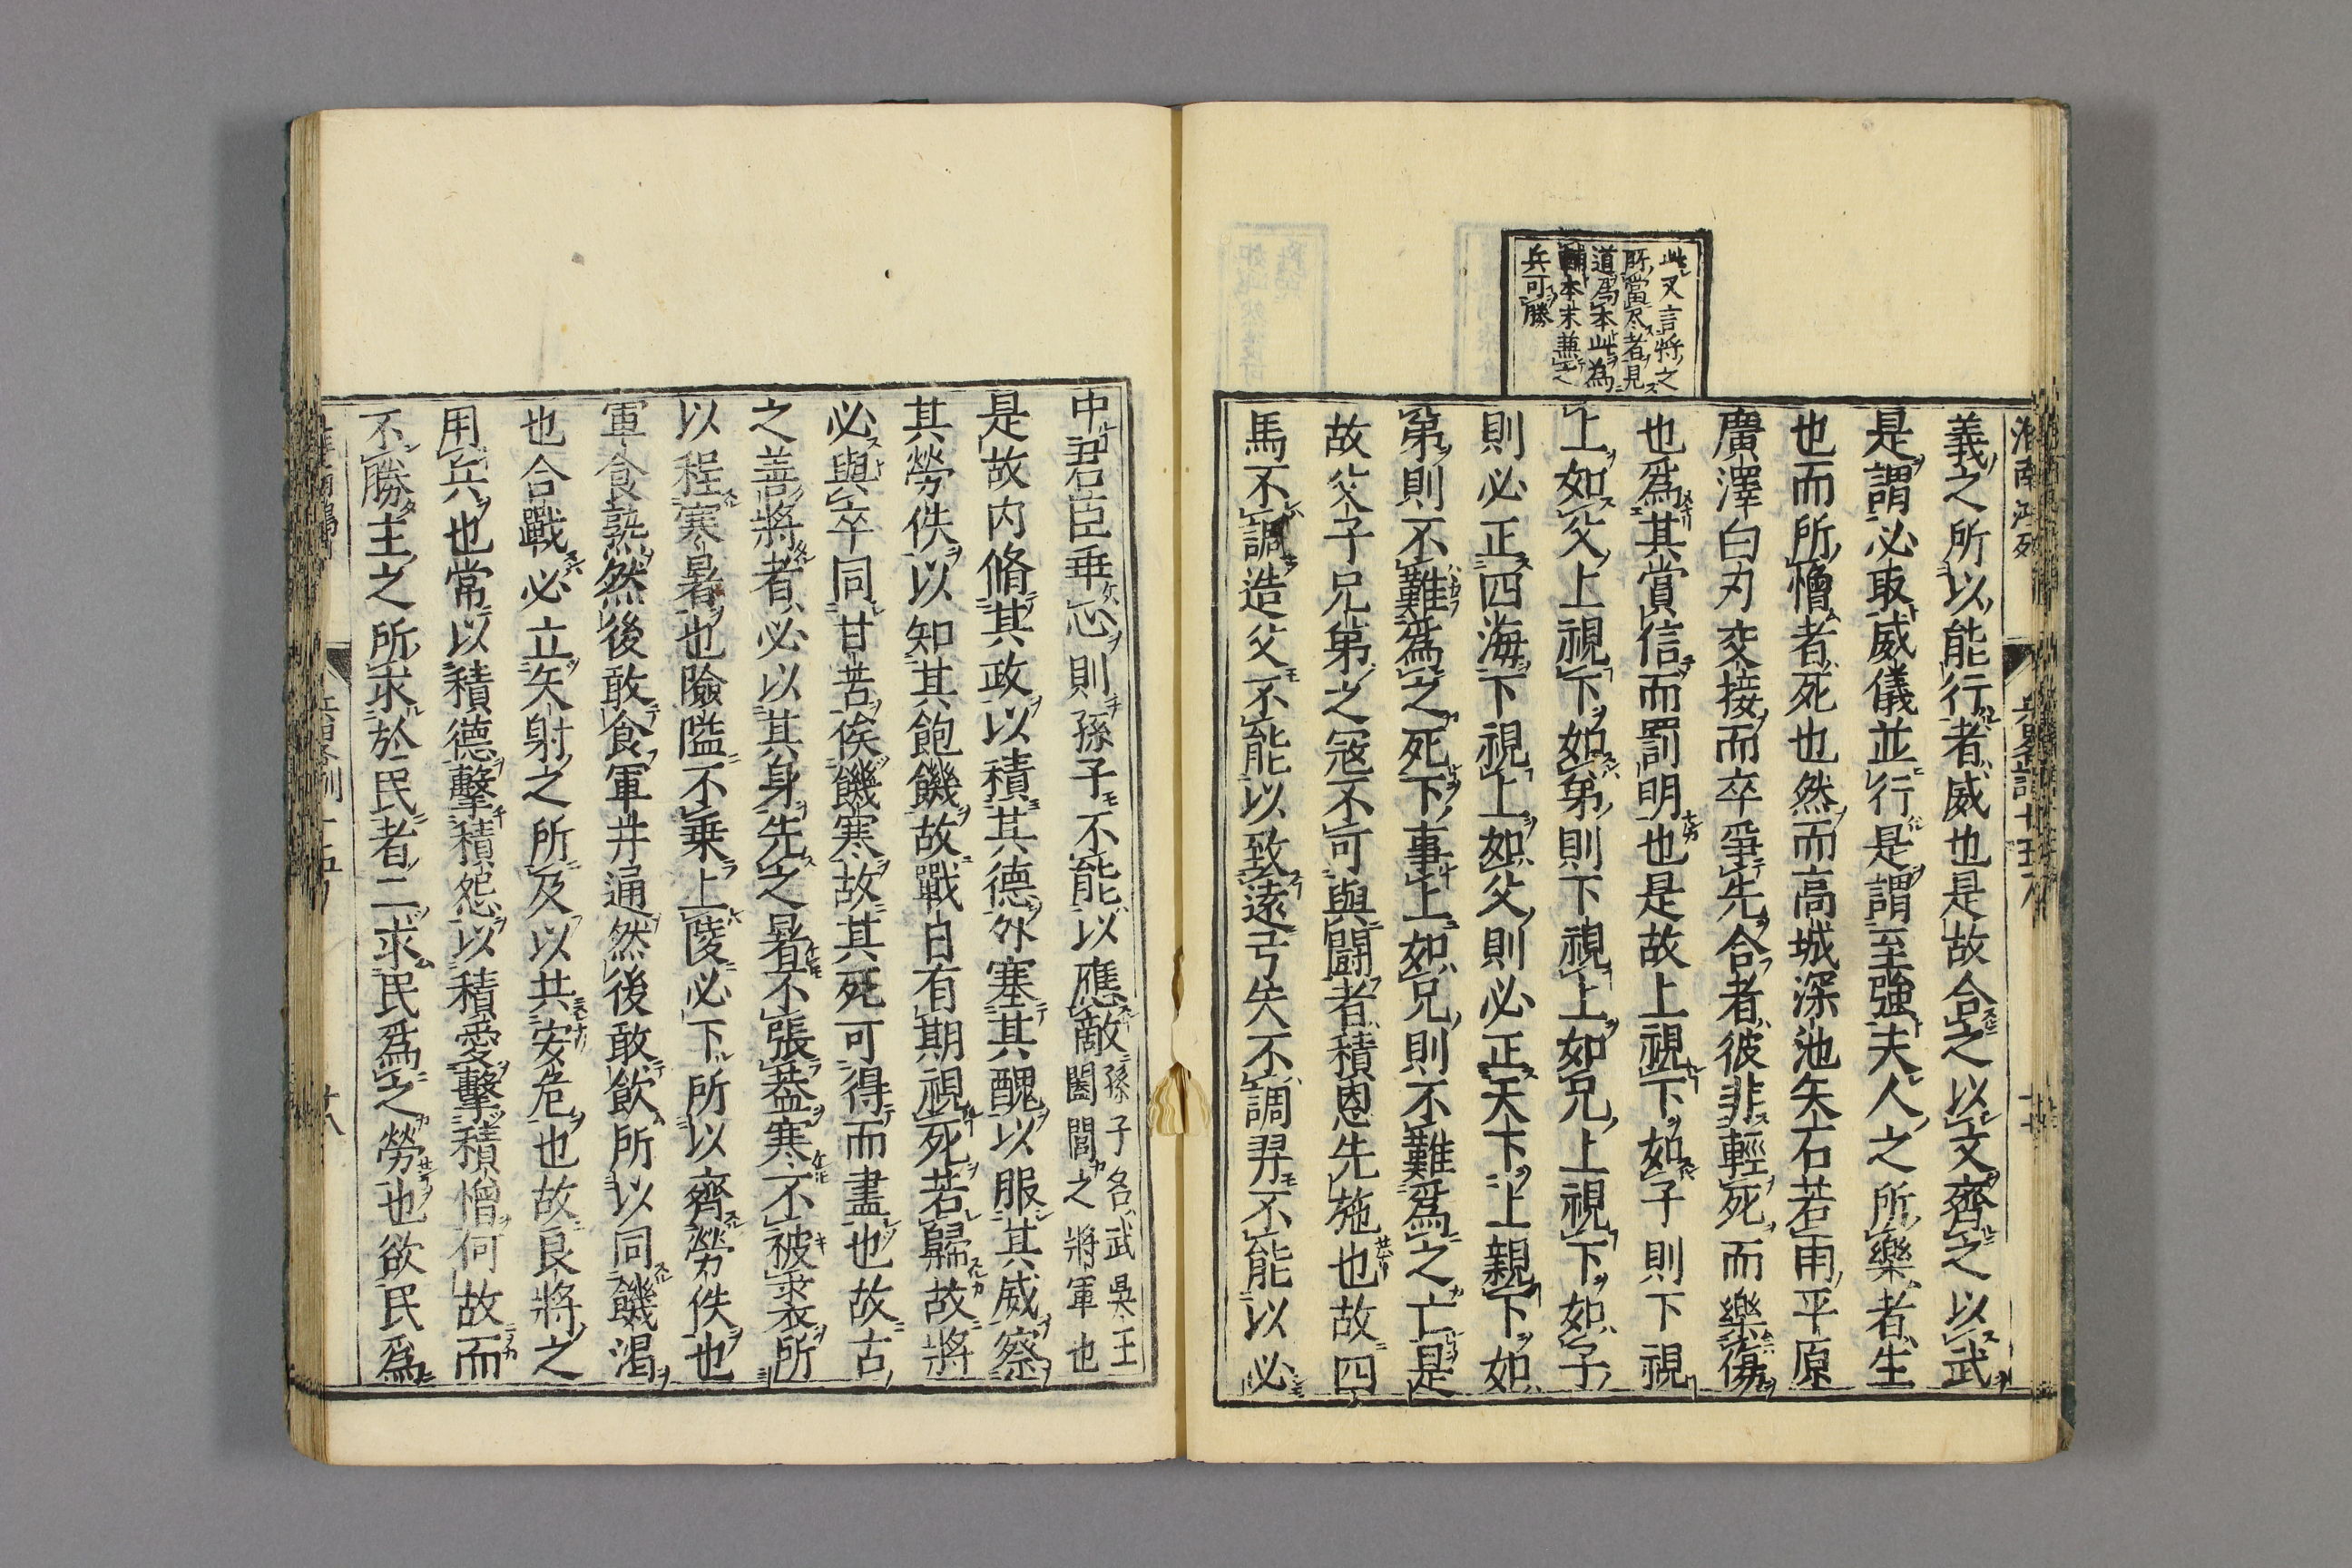 此又言將之
所當尽者見
道爲本此為
輔本末兼之
兵可勝
義之所以能行者威也是故合之以文齊之以武
是謂必取威儀並行是謂至強夫人之所樂者生
也而所憎者死也然而高城深池矢石若雨平原
廣澤白刃交接而卒爭先合者彼非輕死而樂傷
也爲其賞信而罰明也是故上視下如子則下視
上如父上視下如弟則下視上如兄上視下如子
則必正四海下視上如父則必正天下上親下如
弟則不難爲之死下事上如兄則不難爲之亡是
故父子兄弟之寇不可與鬪者積恩先施也故四
馬不調造父不能以致遠弓矢不調羿不能以必
中君臣乖心則孫子不能以應敵孫子各武吳王
闔閭之將軍也
是故内脩其政以積其德外塞其醜以服其威察
其勞佚以知其飽饑故戰日有期視死若歸故將
必與卒同甘苦俟饑寒故其死可得而盡也故古
之善將者必以其身先之暑不張葢寒不被裘所
以程寒暑也險隘不乗上陵必下所以齊勞佚也
軍食熟然後敢食軍井通然後敢飲所以同饑渴
也合戰必立矢射之所及以共安危也故良將之
用兵也常以積德擊積怨以積愛擊積憎何故而
不勝主之所求於民者二求民爲之勞也欲民爲